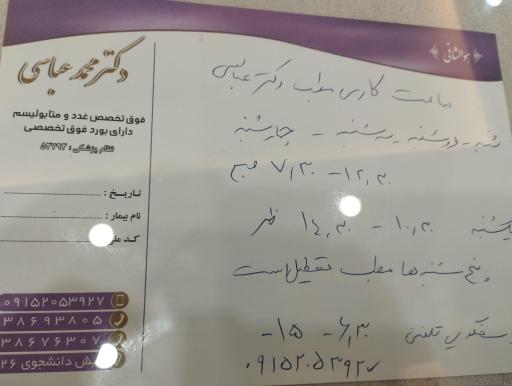 هوالشافی
دکتر محمد عباسی
فوق تخصص غدد و متابولیسم
دارای بورد فوق تخصصی
نظام پزشکی: ۵۳۷۹۳
تاریخ:
نام بیمار:
کد ملی
۰۹۱۵۲۰۵۳۹۲۷
۳۸۶۹۳۸۰۵
۳۸۶۷۶۳۰۷
دانشجوی ۲۶
ساعت کاری مطب دکتر عباسی
شنبه - دوشنبه - سه شنبه - چهارشنبه
۷,۳۰ - ۱۲,۳۰ صبح
یکشنبه ۱۰,۳۰ - ۱۴,۳۰ ظهر
پنج شنبه ها مطب تعطیل است
تلفنی ۶,۳۰ - ۱۵ -
۰۹۱۵۲۰۵۳۹۲۷